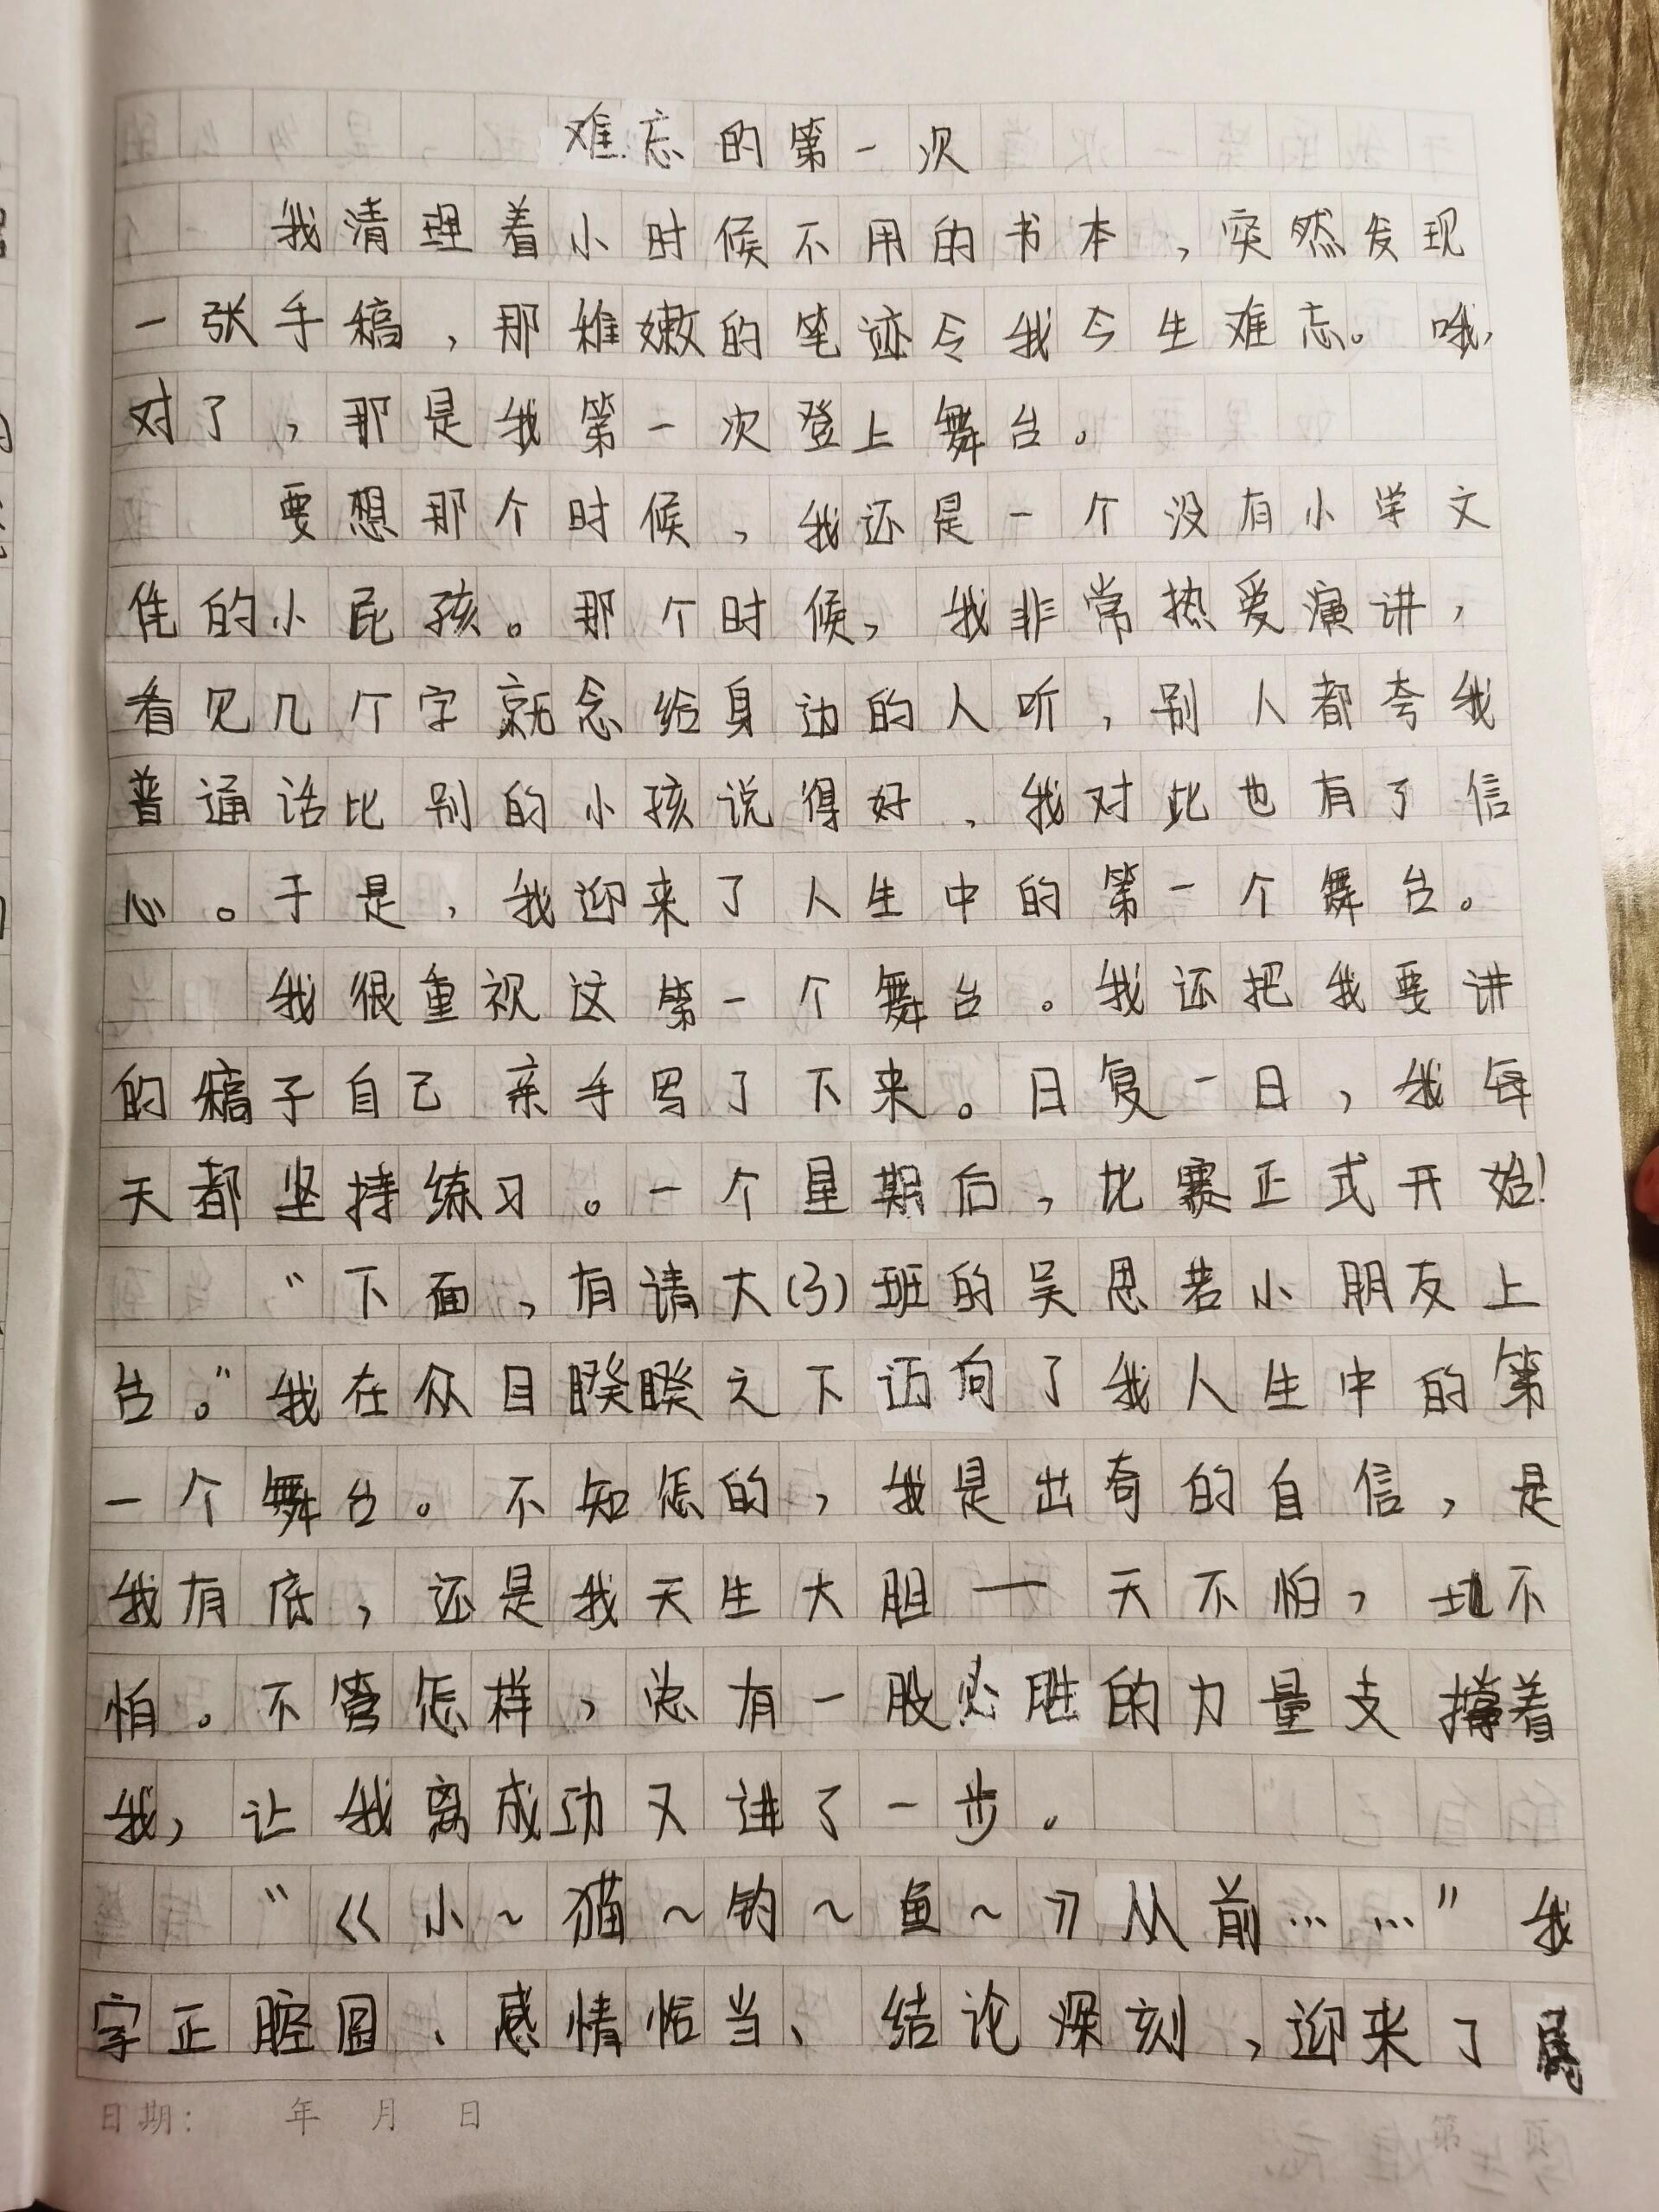 难忘的第一次
我清理着小时候不用的书本，突然发现
一张手稿，那稚嫩的笔迹令我今生难忘。哦，
对了，那是我第一次登上舞台。
要想那个时候，我还是一个没有小学文
凭的小屁孩。那个时候，我非常热爱演讲，
看见几个字就念给身边的人听，别人都夸我
普通话比别的小孩说得好，我对此也有了信
心。于是，我迎来了人生中的第一个舞台。
我很重视这第一个舞台。我还把我要讲
的稿子自己亲手写了下来。日复一日，我每
天都坚持练习。一个星期后，比赛正式开始！
“下面，有请大(3)班的吴思若小朋友上
台。”我在众目睽睽之下迈向了我人生中的第
一个舞台。不知怎的，我是出奇的自信，是
我有底，还是我天生大胆——天不怕，地不
怕。不管怎样，总有一股必胜的力量支撑着
我，让我离成功又进了一步。
“《小~猫~钓~鱼~》从前……”我
字正腔圆、感情恰当、结论深刻，迎来了属
日期：　年　月　日
第　页